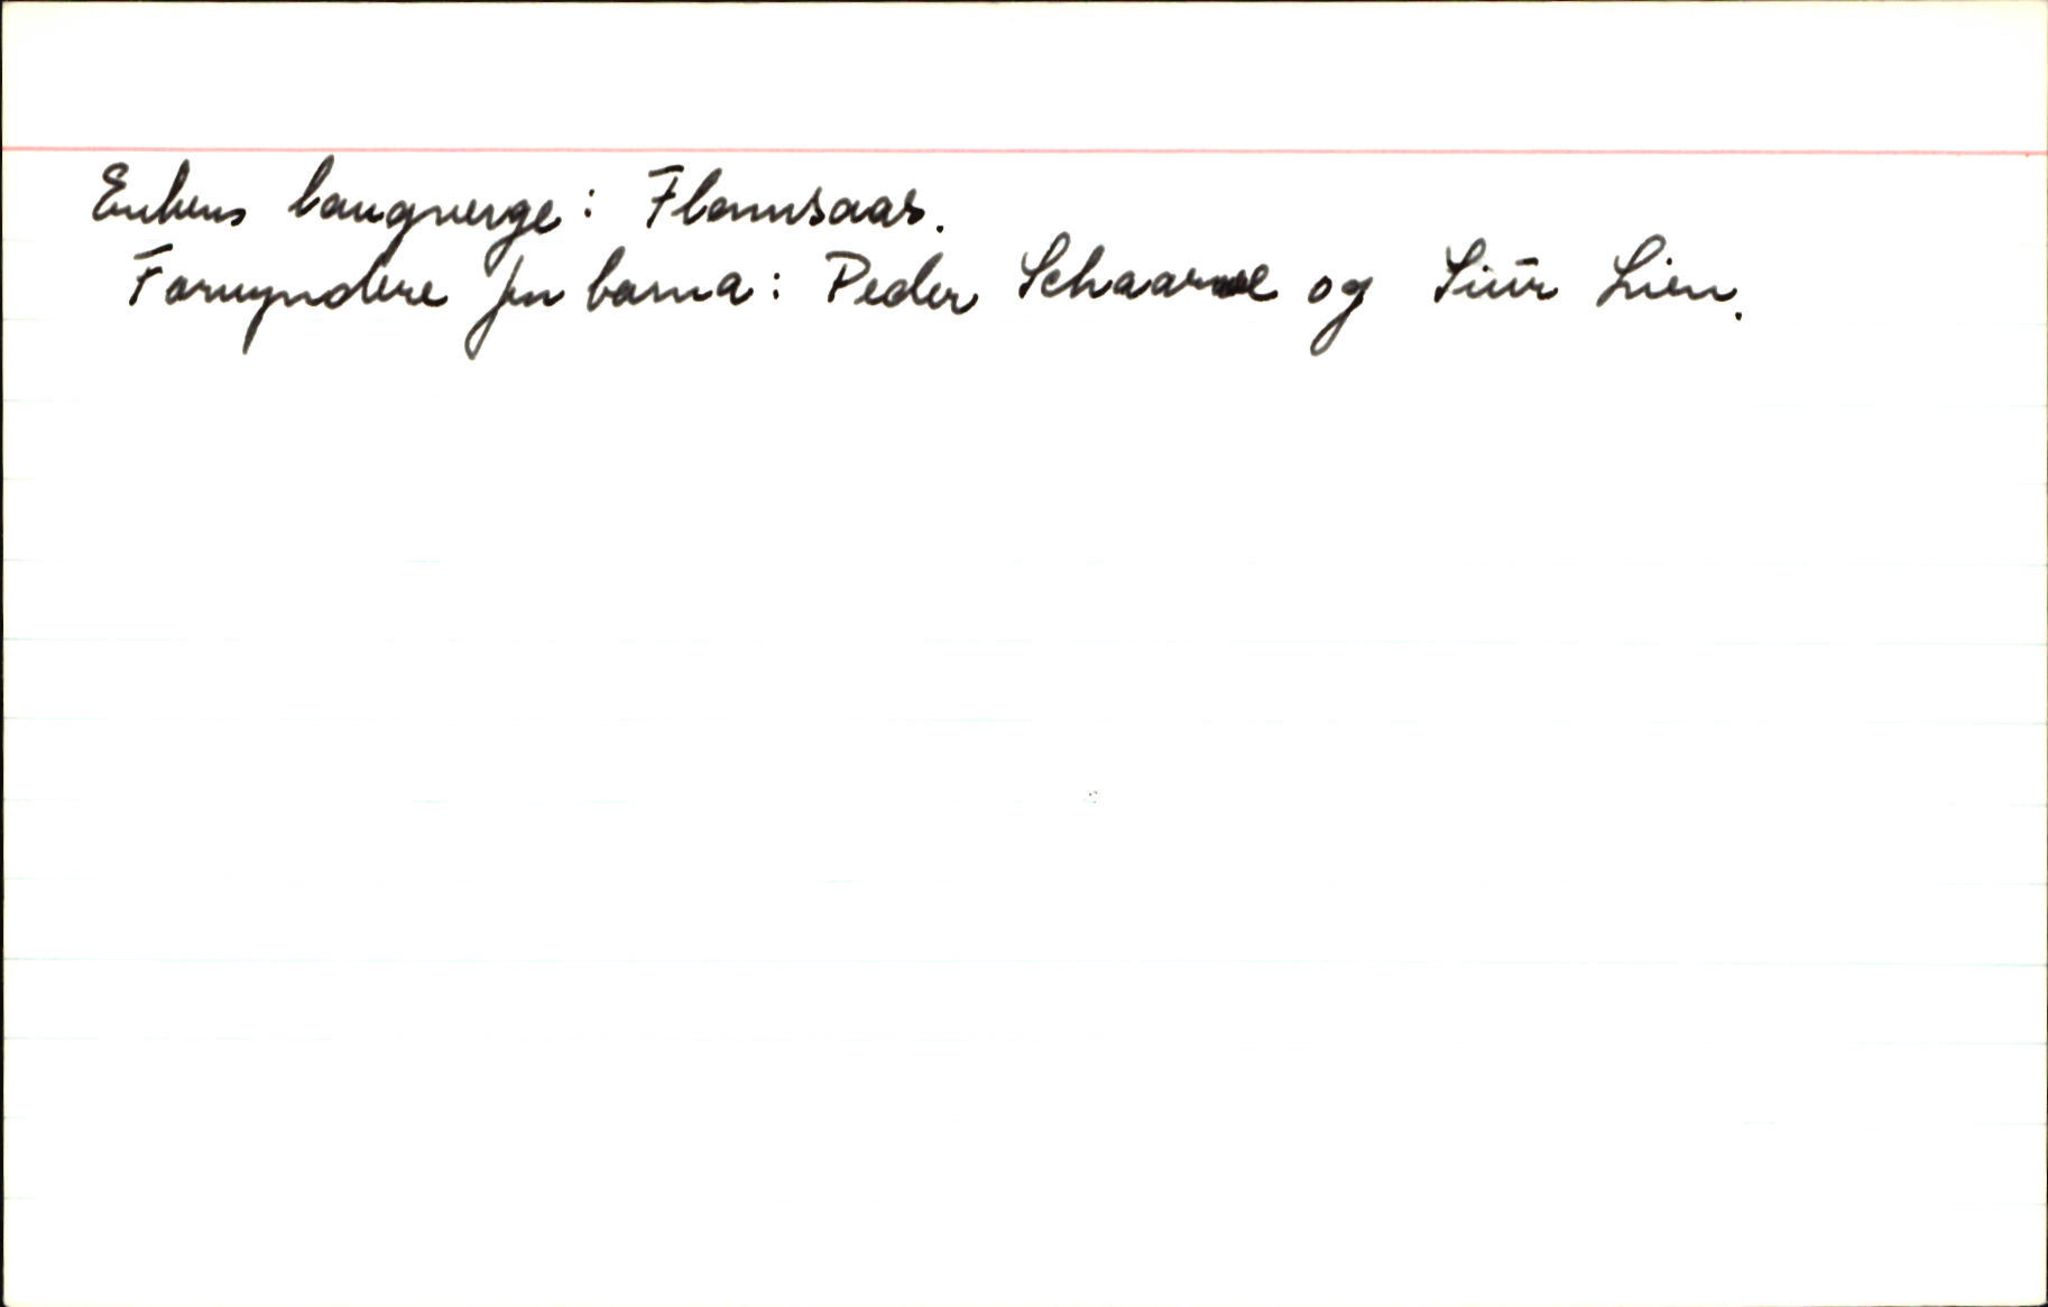 Enkens laugverge: Flamsaas.
Formyndere for barna: Peder og Siur Lien.